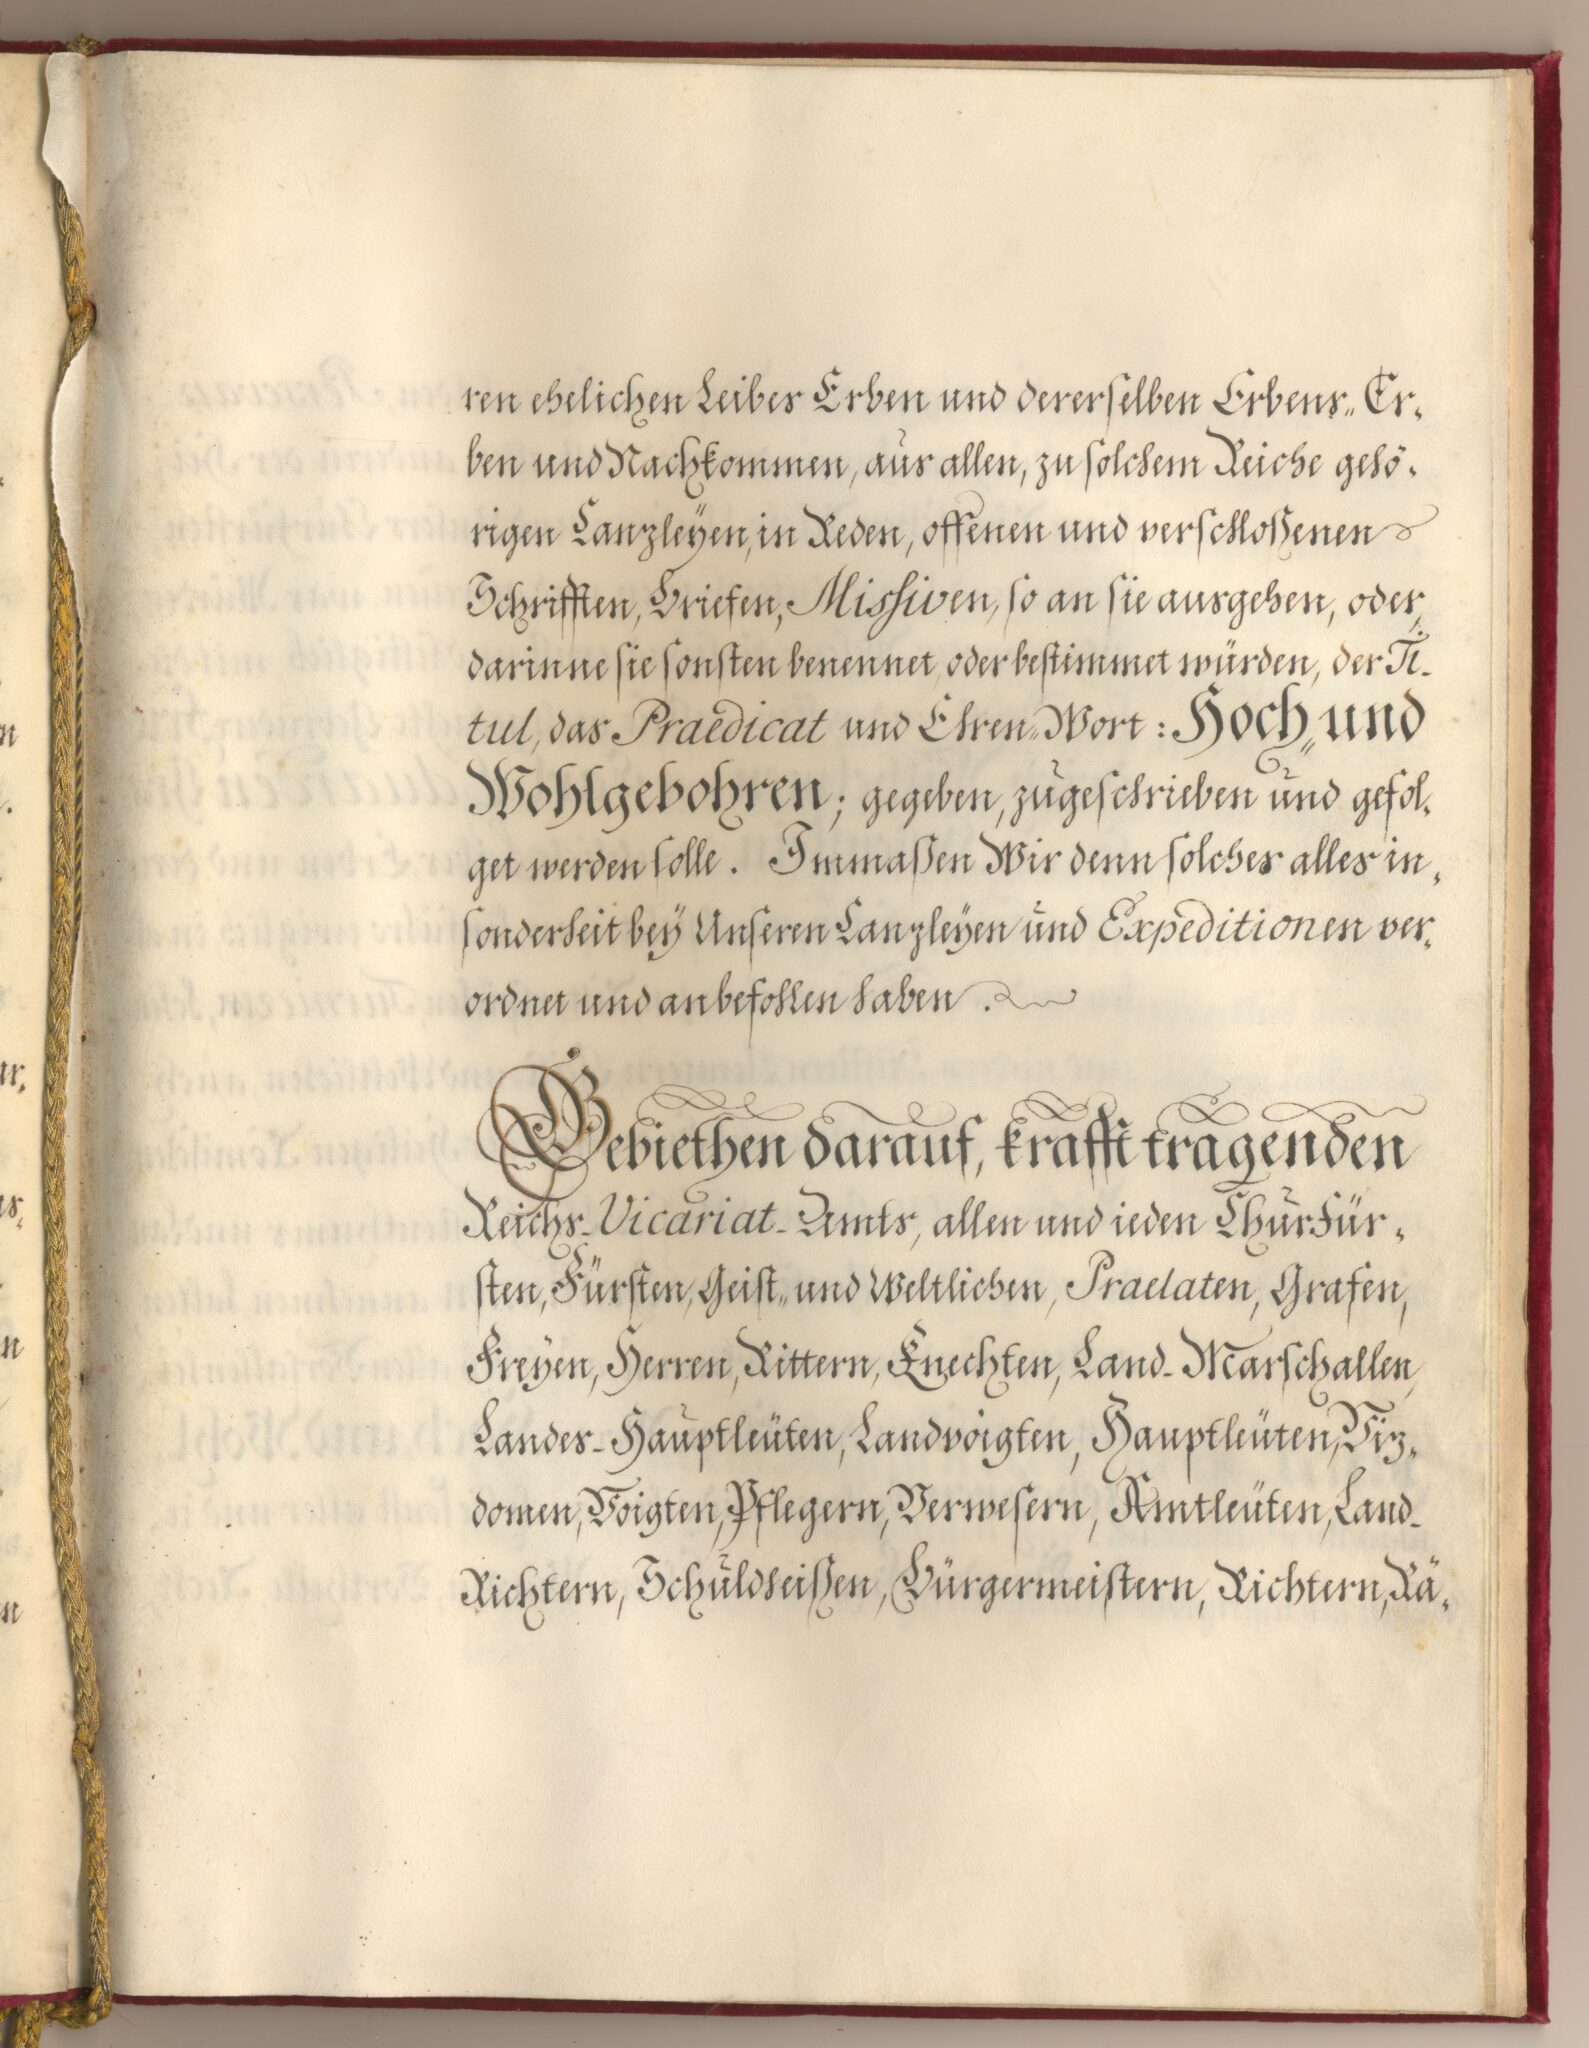 ren ehelichen Leibes Erben und dererselben Erbens-Er-
ben und Nachkommen, aus allen, zu solchem Reiche gehö-
rigen Canzleyen, in Reden, offenen und verschloßenen
Schrifften, Briefen, Missiven, so an sie ausgehen, oder,
darinne sie sonsten benennet, oder bestimmet würden, der Ti-
tul, das Praedicat und Ehren-Wort: Hoch- und
Wohlgebohren; gegeben, zugeschrieben und gefol-
get werden solle. Immaßen Wir denn solches alles in-
sonderheit bey Unseren Canzleyen und Expeditionen ver-
ordnet und anbefohlen haben.
Gebiethen darauf, krafft tragenden
Reichs-Vicariat-Amts, allen und ieden Churfür-
sten, Fürsten, Geist- und Weltlichen, Praelaten, Grafen,
Freyen, Herren, Rittern, Knechten, Land-Marschallen,
Landes-Hauptleüten, Landvoigten, Hauptleüten, Viz-
domen, Voigten, Pflegern, Verwesern, Amtleüten, Land-
Richtern, Schuldheißen, Bürgermeistern, Richtern, Rä-